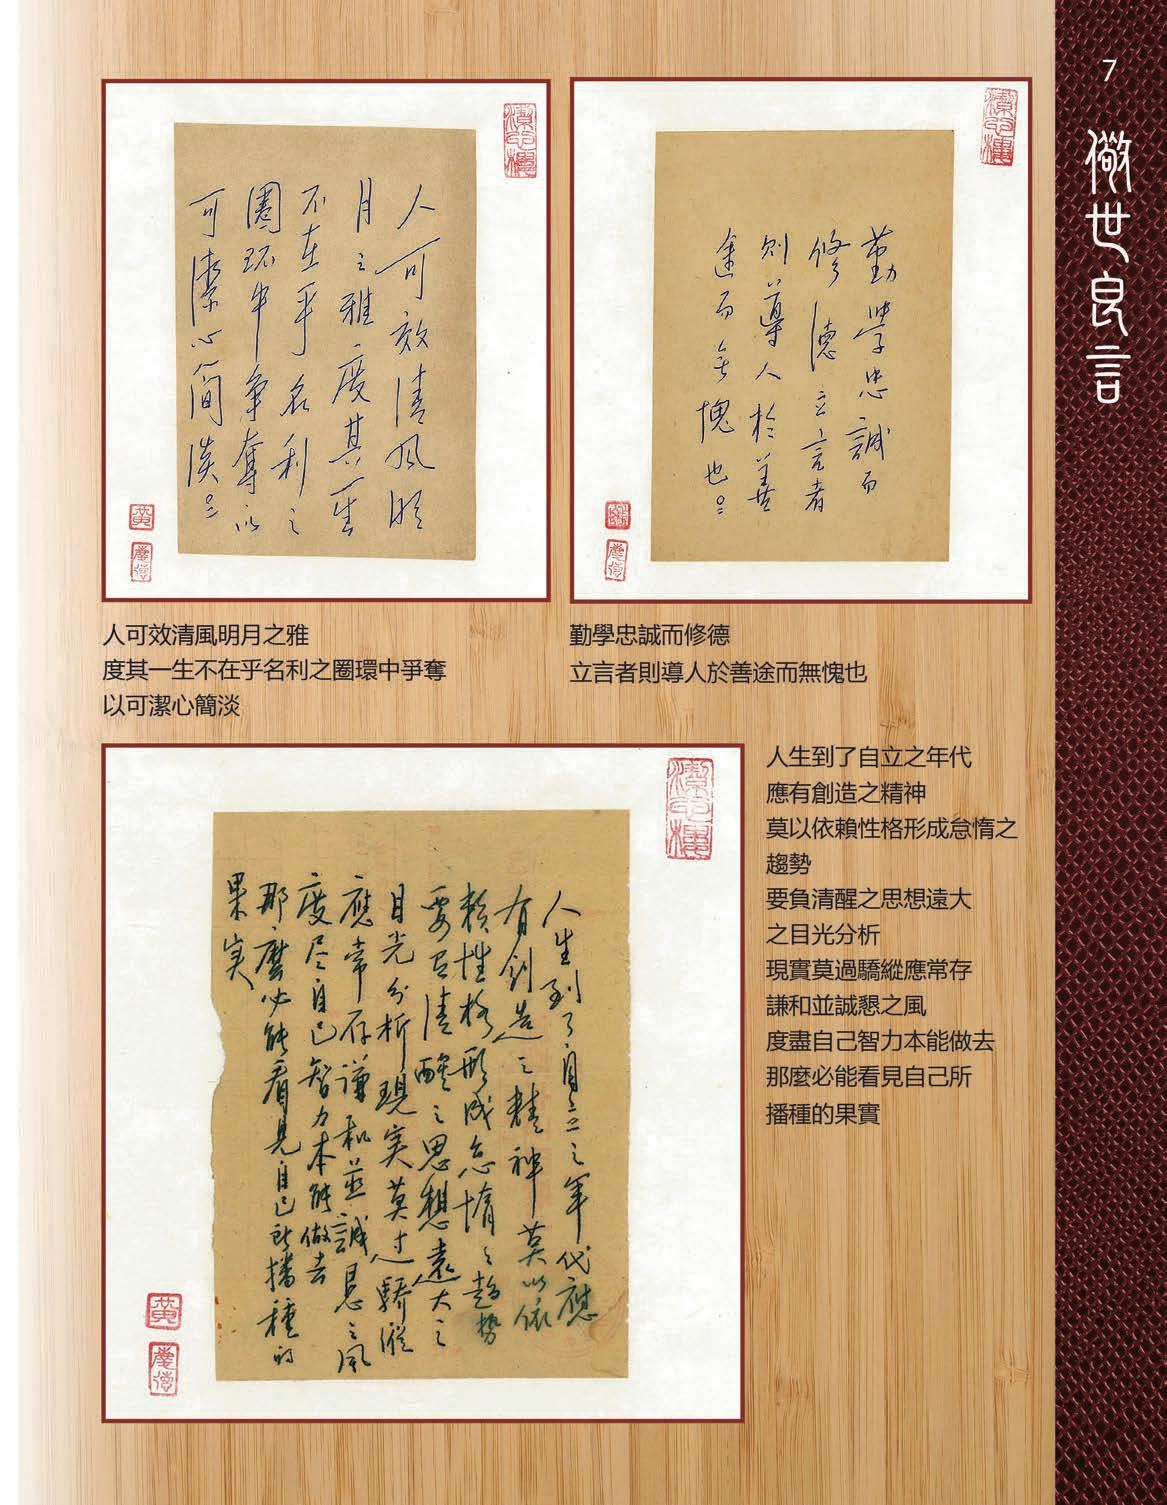 7
儆世良言
潔心樓
人可效清風明
月之雅度其一生
不在乎名利之
圈环中爭奪以
可潔心簡淡
黃
慶德
人可效清風明月之雅
度其一生不在乎名利之圈環中爭奪
以可潔心簡淡
潔心樓
勤學忠誠而
修德立言者
則導人於善
途而無愧也
慶德
勤學忠誠而修德
立言者則導人於善途而無愧也
潔心樓
人生到了自立之年代應
有創造之精神莫以依
賴性格形成怠惰之趨勢
要負清醒之思想遠大之
目光分析現实莫过驕縱
應常存謙和並誠懇之風
度尽自己智力本能做去
那麼必能看見自己所播種的
果实
黃
慶德
人生到了自立之年代
應有創造之精神
莫以依賴性格形成怠惰之
趨勢
要負清醒之思想遠大
之目光分析
現實莫過驕縱應常存
謙和並誠懇之風
度盡自己智力本能做去
那麼必能看見自己所
播種的果實